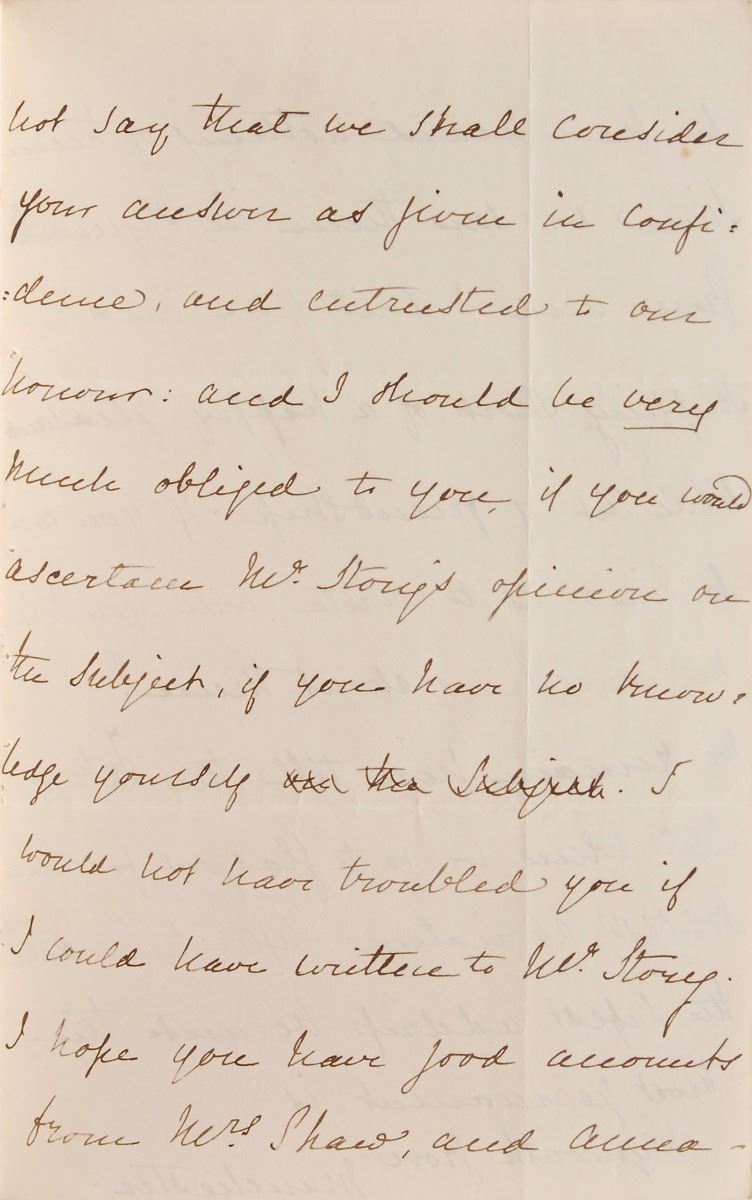 not say that we shall consider
your answer as given in confi:
:dence, and entrusted to our
honour: and I should be very
much obliged to you, if you would
ascertain Mr. Story's opinion on
the subject, if you have no know:
ledge yourself on the subject. I
would not have troubled you if
I could have written to Mr. Story.
I hope you have good accounts
from Mrs Shaw, and Anna -